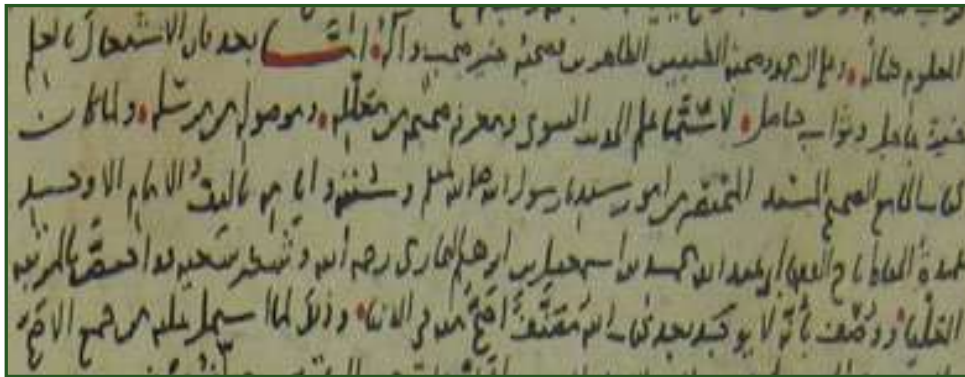 المعلوم خياله وعلى آله وصحبه الطيبين الطاهرين صحبه خير صحب وآله أما بعد فان الاشتغال بالعلم
غنية وثواب حاصل لا سيما علم الحديث النبوي ومعرفة صحيحه من معلله وموصوله من مرسله ولما كان
كتاب الجامع الصحيح المسند المختصر من امور سيدنا رسول الله صلى الله عليه وسلم وسننه وأيامه تأليف الامام الاوحد
عمدة الحفاظ تاج ابي عبد الله محمد بن اسمعيل بن ابرهيم البخاري رحمه الله وشكر سعيه قد اختص بالمرتبة
العليا ووصف بأنه لا يوجد بعد كتاب الله مصنف أصح منه في الدنيا وذلك لما اشتمل عليه من جمع الاصح